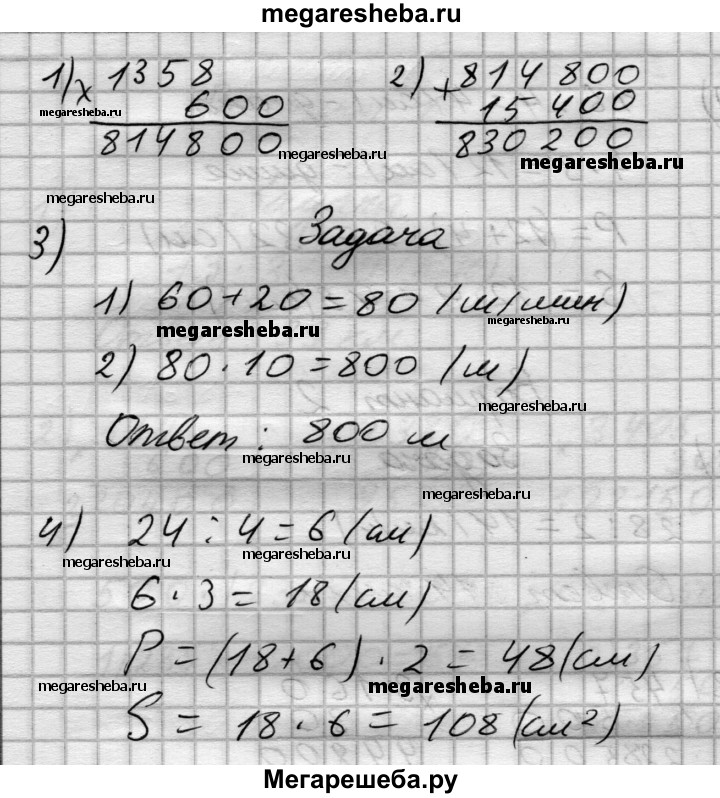 megaresheba.ru
1) × 1358
600
814800
2) + 814 800
15 400
830200
megaresheba.ru
megaresheba.ru
megaresheba.ru
megaresheba.ru
3) Задача
1) 60+20=80 (м/мин)
megaresheba.ru
megaresheba.ru
2) 80·10=800 (м)
megaresheba.ru
Ответ: 800 м
megaresheba.ru
megaresheba.ru
4) 24:4=6 (см)
megaresheba.ru
megaresheba.ru
6·3=18 (см)
P=(18+6)·2=48 (см)
megaresheba.ru
megaresheba.ru
S=18·6=108 (см²)
Мегарешеба.ру